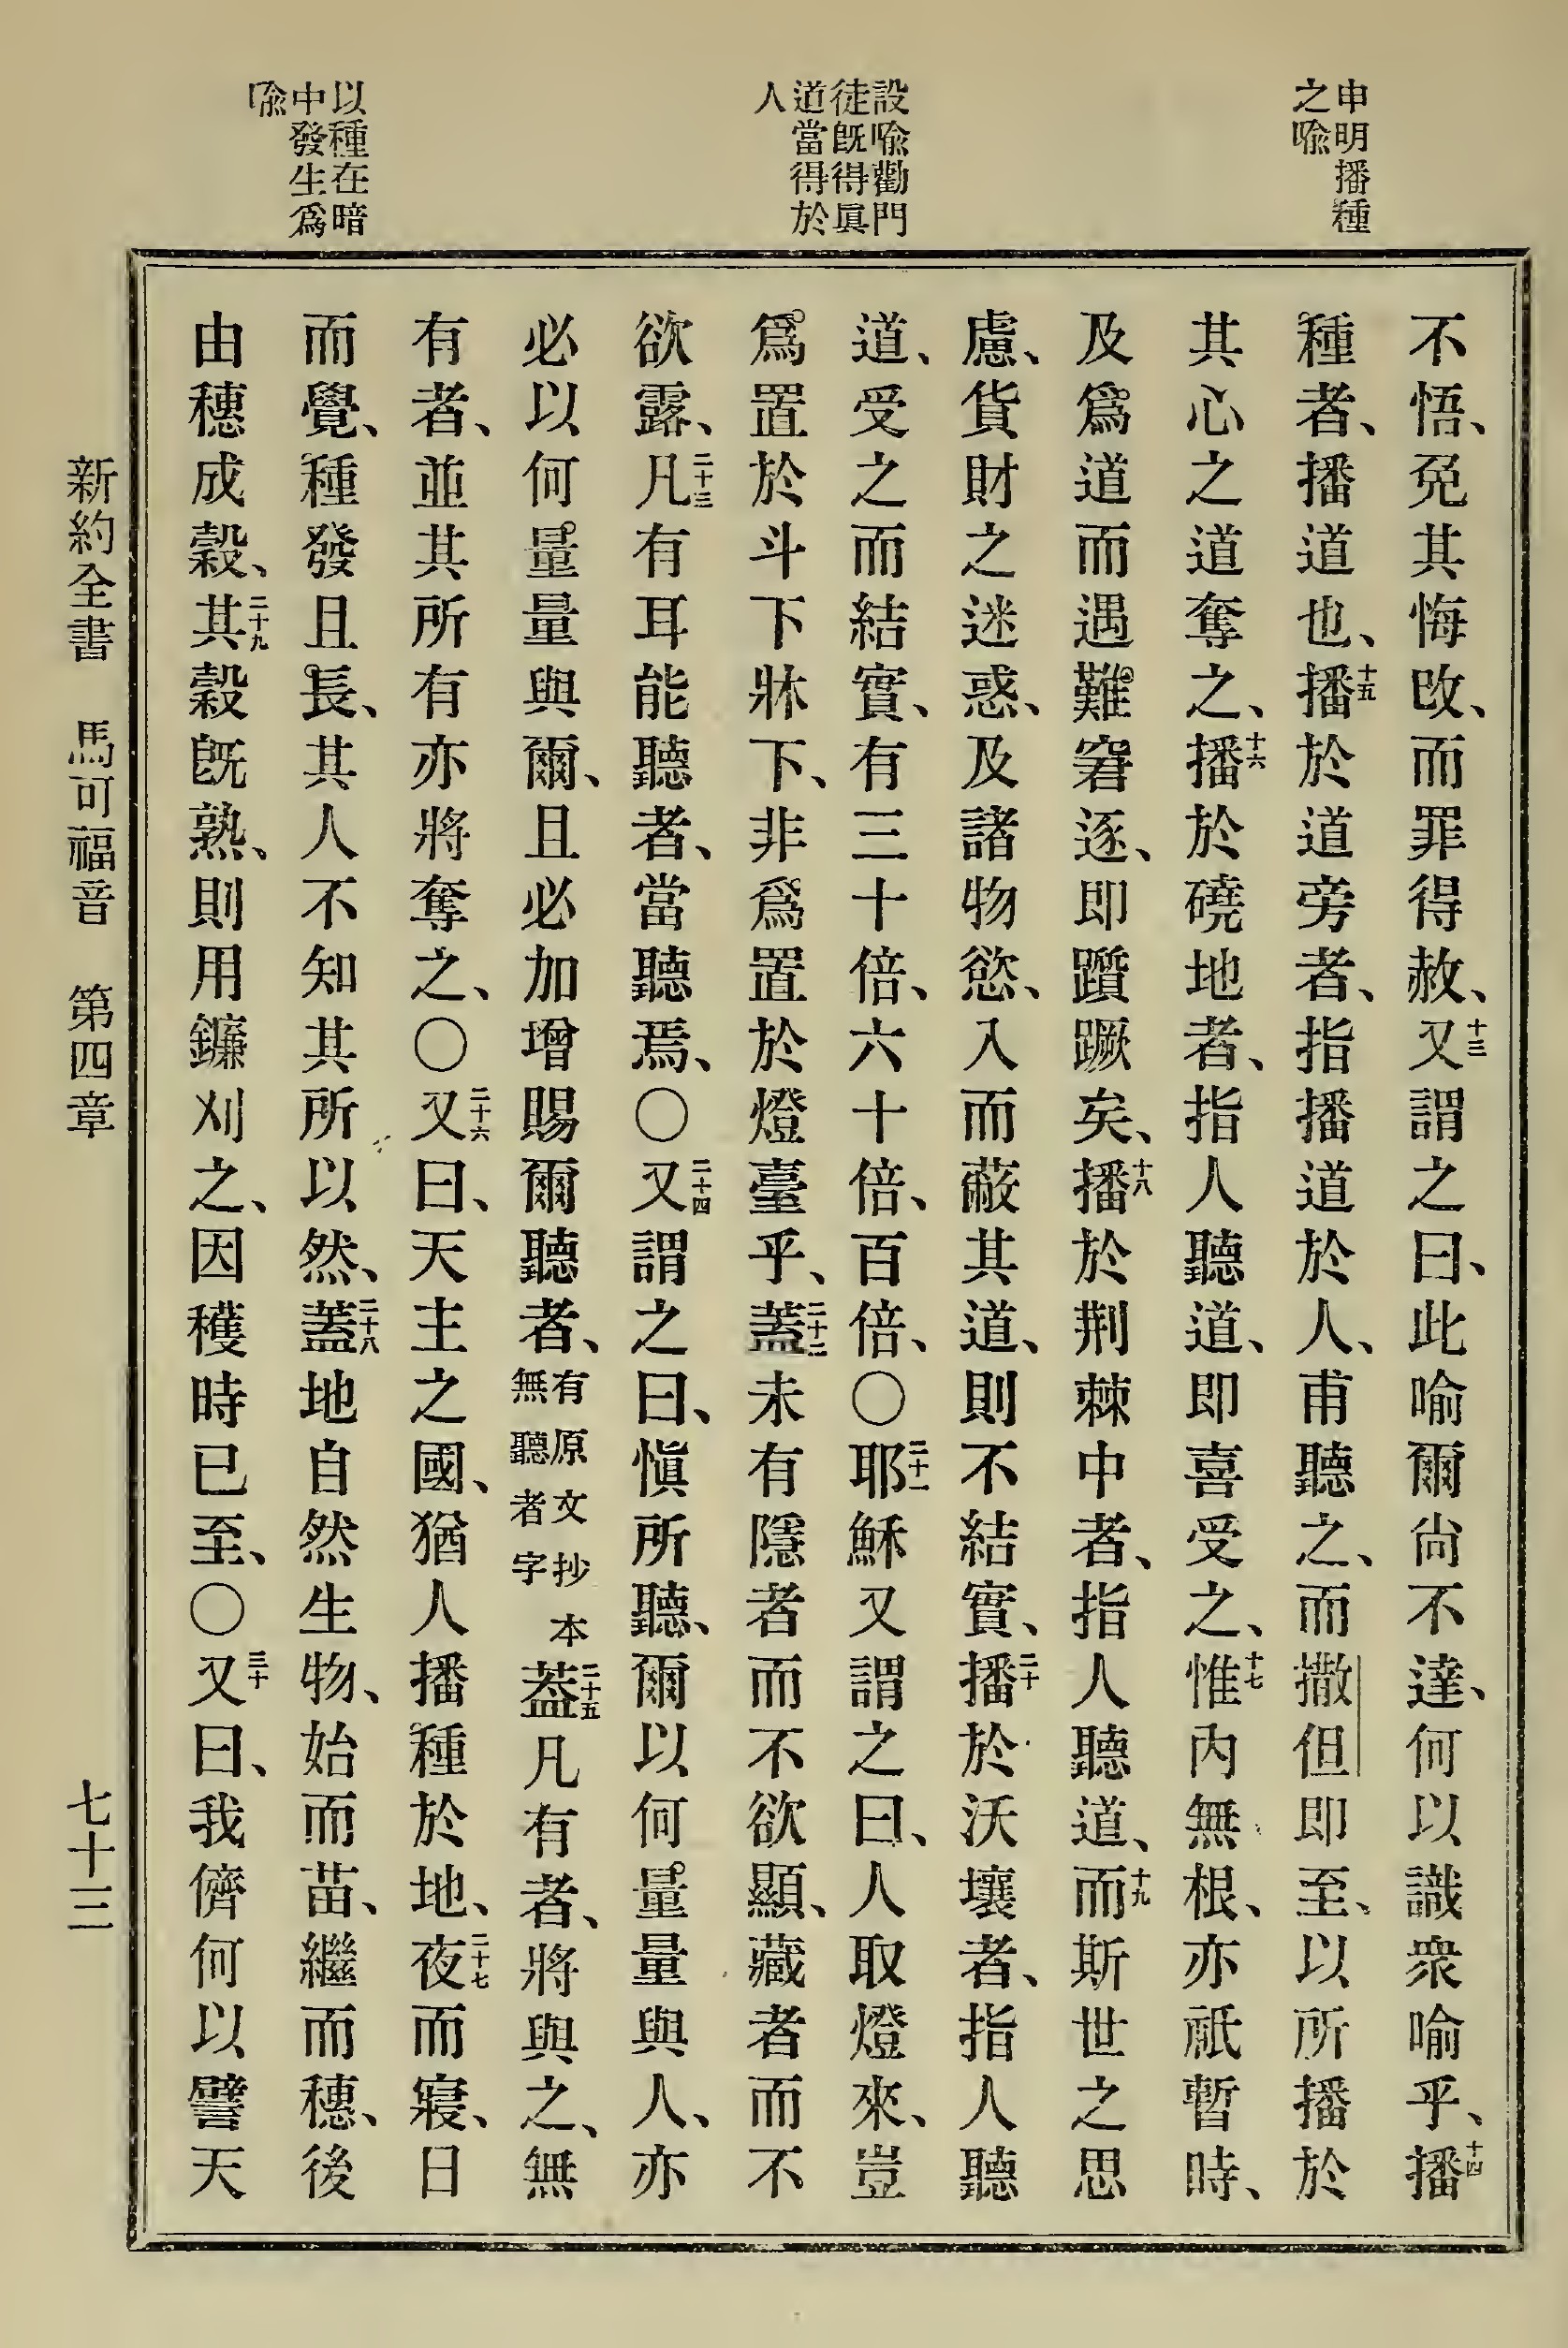 申明播種
之喩
設喩勸門
徒旣得眞
道當得於
人
以種在暗
中發生爲
喩
不悟、免其悔改、而罪得赦、十三又謂之曰、此喻爾尙不達、何以識衆喻乎、十四播
種者、播道也、十五播於道旁者、指播道於人、甫聽之、而撒但即至、以所播於
其心之道奪之、十六播於磽地者、指人聽道、即喜受之、十七惟內無根、亦祇暫時、
及爲道而遇難窘逐、即躓蹶矣、十八播於荆棘中者、指人聽道、十九而斯世之思
慮、貨財之迷惑、及諸物慾、入而蔽其道、則不結實、二十播於沃壤者、指人聽
道、受之而結實、有三十倍、六十倍、百倍、〇二十一耶穌又謂之曰、人取燈來、豈
爲置於斗下牀下、非爲置於燈臺乎、二十二蓋未有隱者而不欲顯、藏者而不
欲露、二十三凡有耳能聽者、當聽焉、〇二十四又謂之曰、愼所聽、爾以何量量與人、亦
必以何量量與爾、且必加增賜爾聽者、有原文抄本無聽者字二十五蓋凡有者、將與之、無
有者、並其所有亦將奪之、〇二十六又曰、天主之國、猶人播種於地、二十七夜而寢、日
而覺、種發且長、其人不知其所以然、二十八蓋地自然生物、始而苗、繼而穗、後
由穗成穀、二十九其穀旣熟、則用鐮刈之、因穫時已至、〇三十又曰、我儕何以譬天
新約全書 馬可福音 第四章 七十三